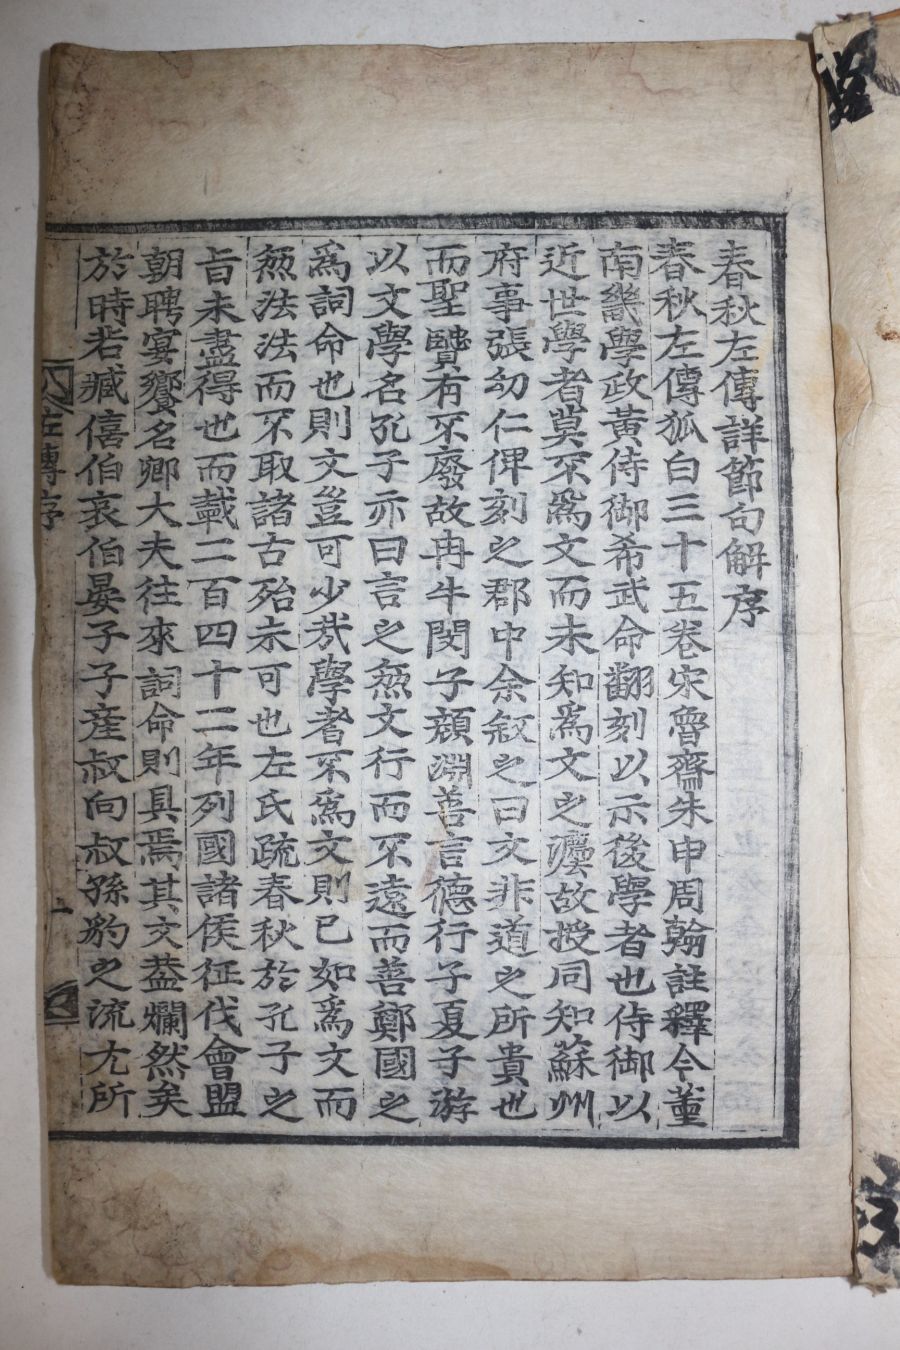 春秋左傳詳節句解序
春秋左傳狐白三十五卷宋魯齋朱申周翰註釋今董
南畿學政黃侍御希武命翻刻以示後學者也侍御以
近世學者莫不爲文而未知爲文之 故授同知蘇州
府事張幼仁俾刻之郡中余敍之曰文非道之所貴也
而聖贒有不廢故冉牛閔子顔淵善言德行子夏子游
以文學名孔子亦曰言之無文行而不遠而善鄭國之
爲詞命也則文豈可少哉學者不爲文則已如爲文而
無法法而不取諸古殆未可也左氏疏春秋於孔子之
旨未盡得也而載二百四十二年列國諸侯征伐會盟
朝聘宴饗名卿大夫往來詞命則具焉其文葢爛然矣
於時若臧僖伯哀伯晏子子産叔向叔孫豹之流尤所
左傳序
一